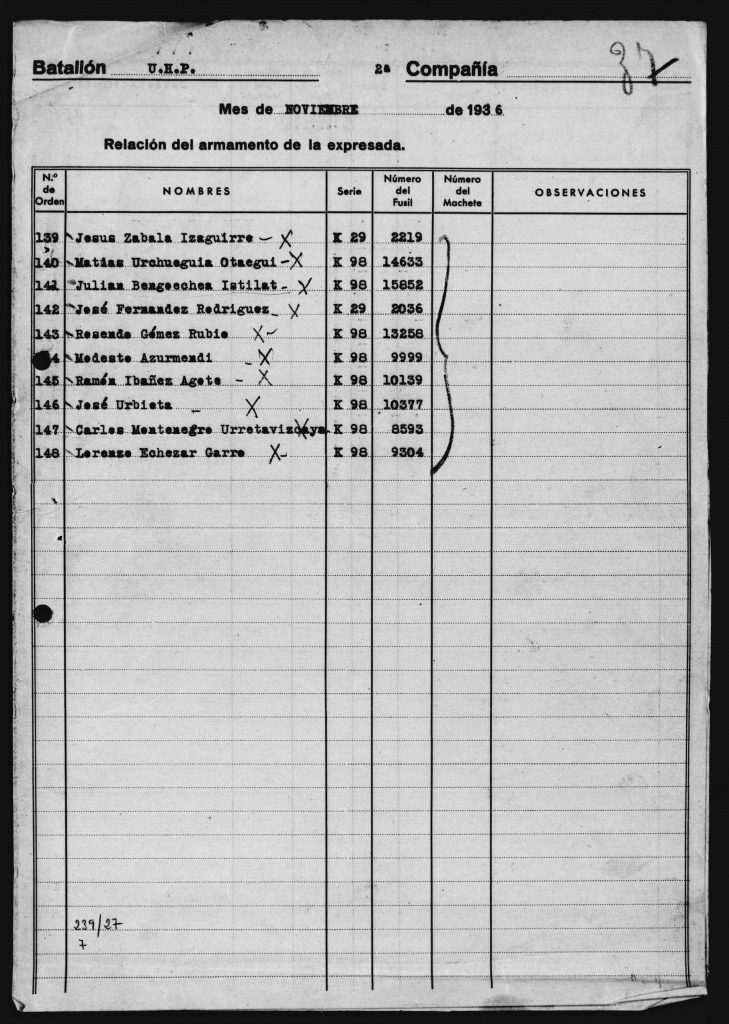 37
Batallón U.H.P. 2ª Compañía
Mes de NOVIEMBRE de 1936
Relación del armamento de la expresada.
N.º de Orden NOMBRES Serie Número del Fusil Número del Machete OBSERVACIONES
139 Jesus Zabala Izaguirre - X K 29 2219
140 Matias Urchueguia Otaegui - X K 98 14633
141 Julian Bengoechea Istilat - X K 98 15852
142 José Fernandez Rodriguez - X K 29 2036
143 Rosendo Gómez Rubio X - K 98 13258
4 Modesto Azurmendi - X K 98 9999
145 Ramón Ibañez Agote - X K 98 10139
146 José Urbieta - X K 98 10377
147 Carlos Montenegro Urretavizcaya X K 98 8593
148 Lorenzo Echezar Garro X - K 98 9304
239/27
7